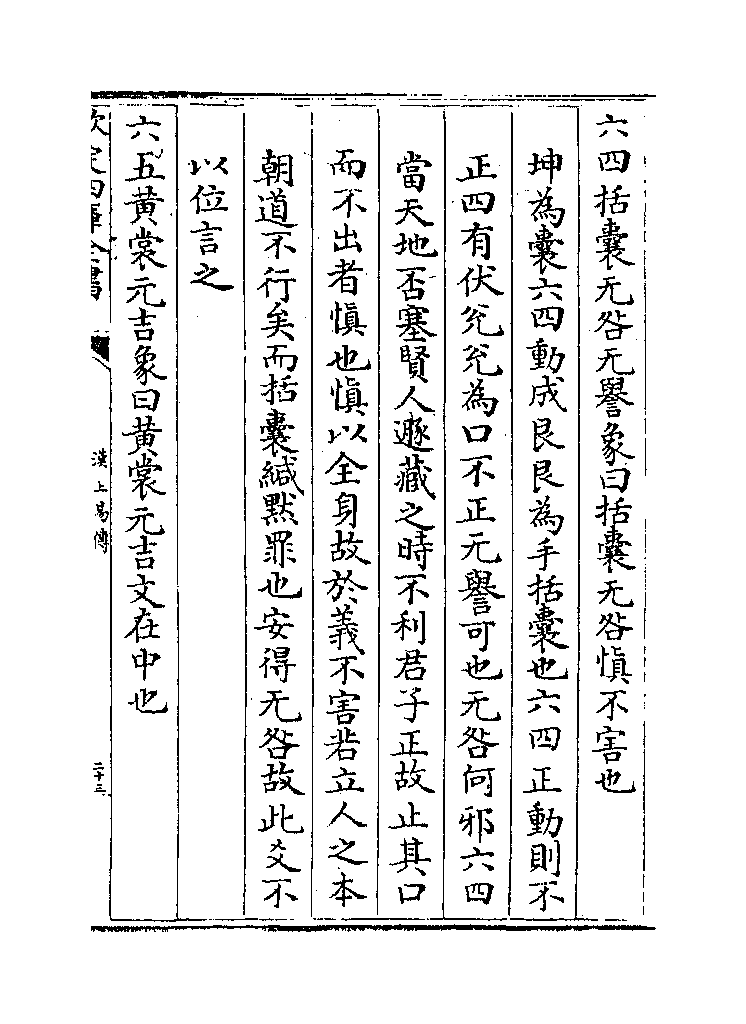 六四括囊无咎无譽象曰括囊无咎慎不害也
坤為囊六四動成艮艮為手括囊也六四正動則不
正四有伏兊兊為口不正无譽可也无咎何邪六四
當天地否塞賢人遯藏之時不利君子正故止其口
而不出者慎也慎以全身故於義不害若立人之本
朝道不行矣而括囊緘默罪也安得无咎故此爻不
以位言之
六五黄裳元吉象曰黄裳元吉文在中也
欽定四庫全書
漢上易傳
二十三